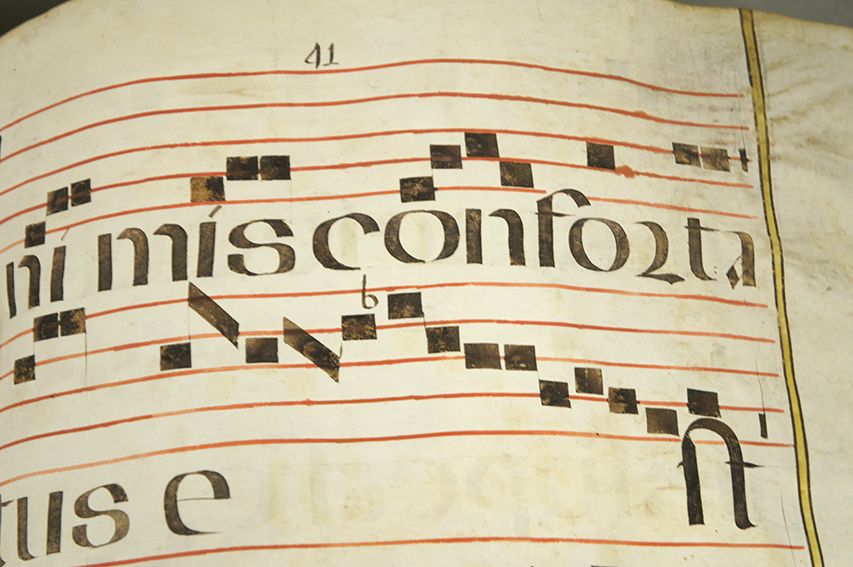 41
ni mis conforta
tus e st